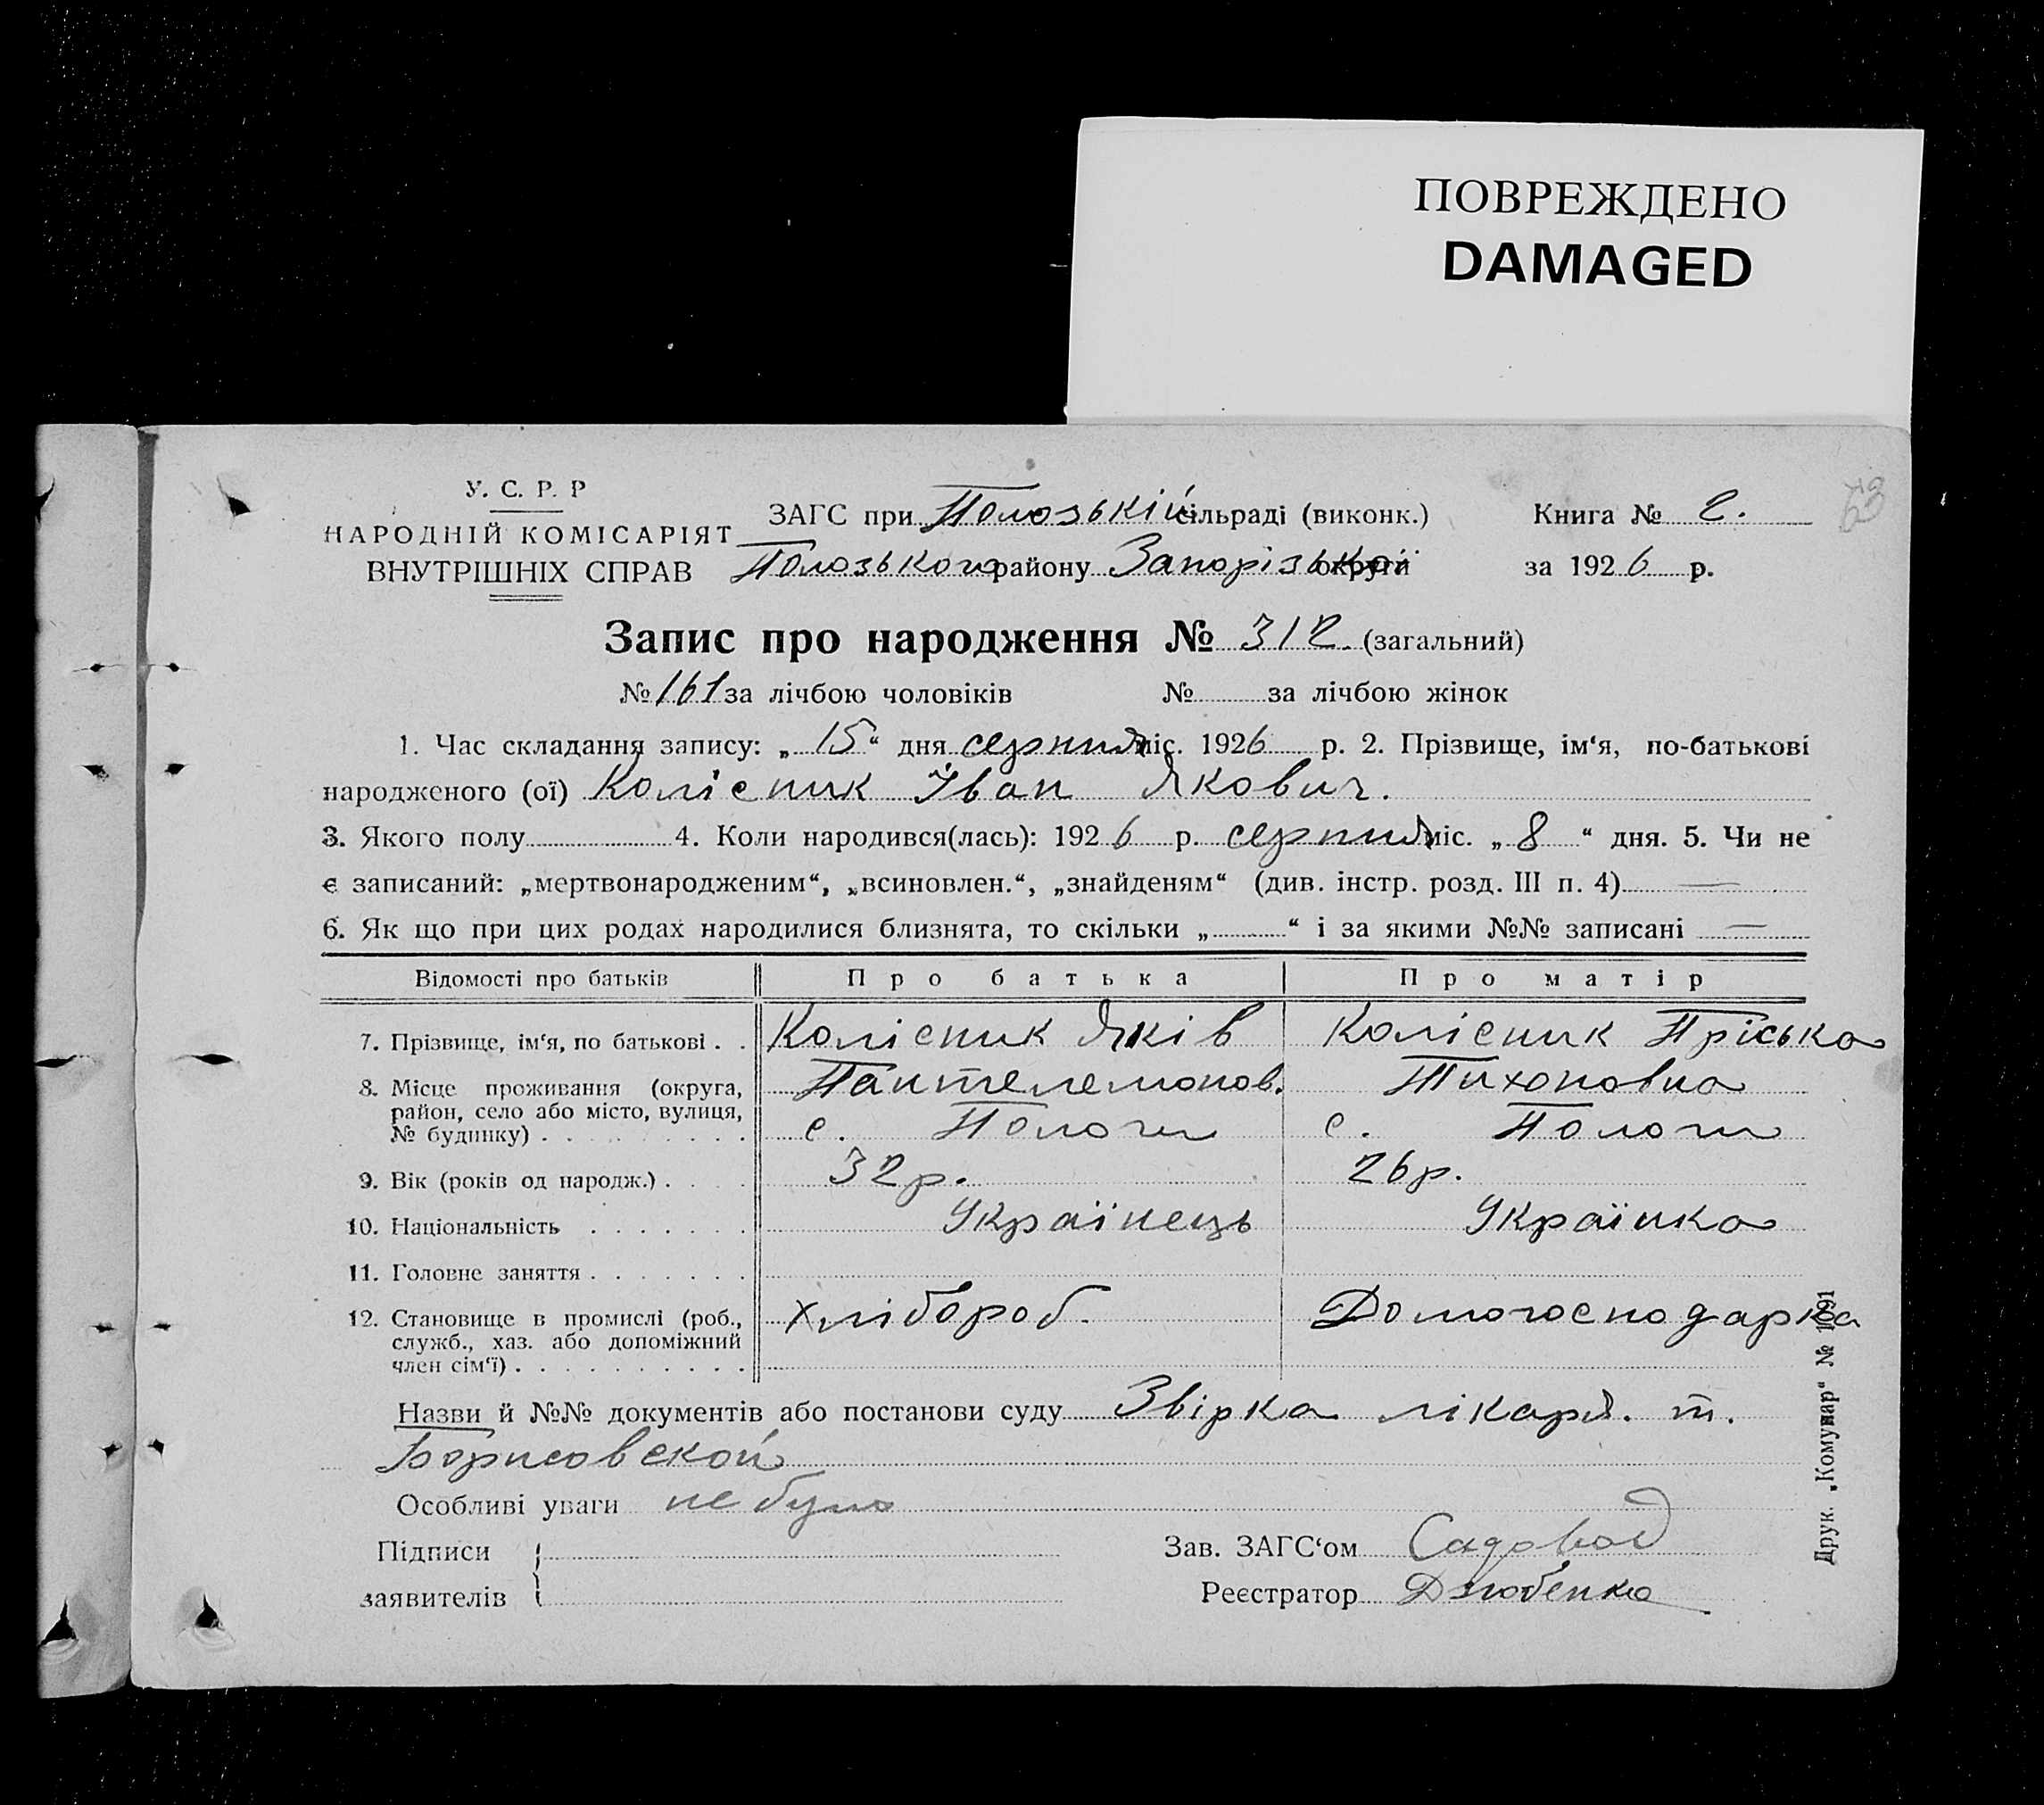 ПОВРЕЖДЕНО
DAMAGED
У. С. Р. Р
НАРОДНІЙ КОМІСАРІЯТ
ВНУТРІШНІХ СПРАВ
ЗАГС при Полозькій сільраді (виконк.)
Полозького району Запорізької округи
Книга № 2.
за 1926 р.
63
Запис про народження № 312. (загальний)
№ 161 за лічбою чоловіків № за лічбою жінок
1. Час складання запису: „ 15 “ дня серпня міс. 1926 р. 2. Прізвище, ім‘я, по-батькові
народженого (ої) Колісник Іван Якович.
3. Якого полу 4. Коли народився(лась): 1926 р. серпня міс. „ 8 “ дня. 5. Чи не
є записаний: „мертвонародженим“, „всиновлен.“, „знайденям“ (див. інстр. розд. III п. 4) —
6. Як що при цих родах народилися близнята, то скільки „ “ і за якими №№ записані —
Відомості про батьків Про батька Про матір
7. Прізвище, ім‘я, по батькові . . Колісник Яків Колісник Пріська
8. Місце проживання (округа, Пантелемонов. Тихоновна
район, село або місто, вулиця,
№ будинку) . . . . . . . . . с. Пологи с. Пологи
9. Вік (років од народж.) . . . . 32 р. 26 р.
10. Національність . . . . . . . Українець Українка
11. Головне заняття . . . . . . .
12. Становище в промислі (роб., хлібороб. Домогосподарка
служб., хаз. або допоміжний
член сім‘ї) . . . . . . . . . .
Назви й №№ документів або постанови суду Звірка лікаря. т.
Борисовской
Особливі уваги не було
Підписи
заявителів
Зав. ЗАГС‘ом Садовод
Реєстратор Дзюбенко
Друк. „Комунар“ № 1691